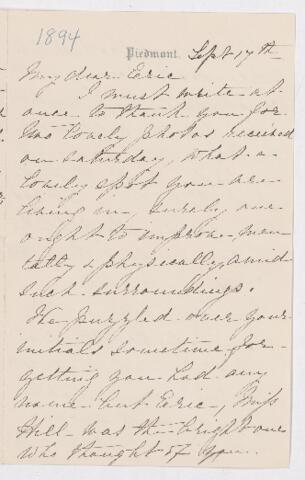 1894
Piedmont.
Sept 17th
My dear Eric
I must write at
once to thank you for
two lovely photos received
on Saturday, what a
lovely spot you are
living in, surely one
ought to improve men
tally & physically amid
such surroundings.
We puzzled over your
initials sometime for
getting you had any
name but Eric, Miss
Hill was the bright one
who thought of you.